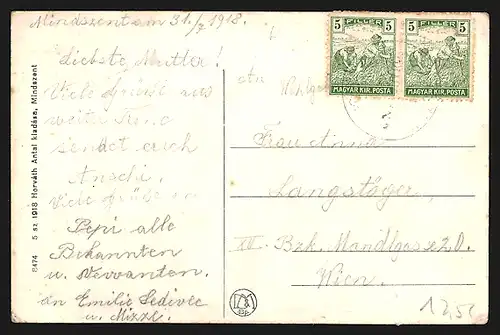 Mindszent am 31./7 1918.
Liebste Mutter!
Viele Grüße aus
weiter Ferne
sendet euch
Anschi.
Viele Grüße an
Pepi alle
Bekannten
u. Verwanten.
an Emilie Sedivec
u. Mizzi.
8474 5 sz. 1918 Horváth Antal kiadása, Mindszent
5 FILLER 5
MAGYAR KIR. POSTA
FILLER 5
MAGYAR KIR. POSTA
An
Frau Anna
Langstöger
XII Bzk. Mandlgasse 20.
Wien.
12,50